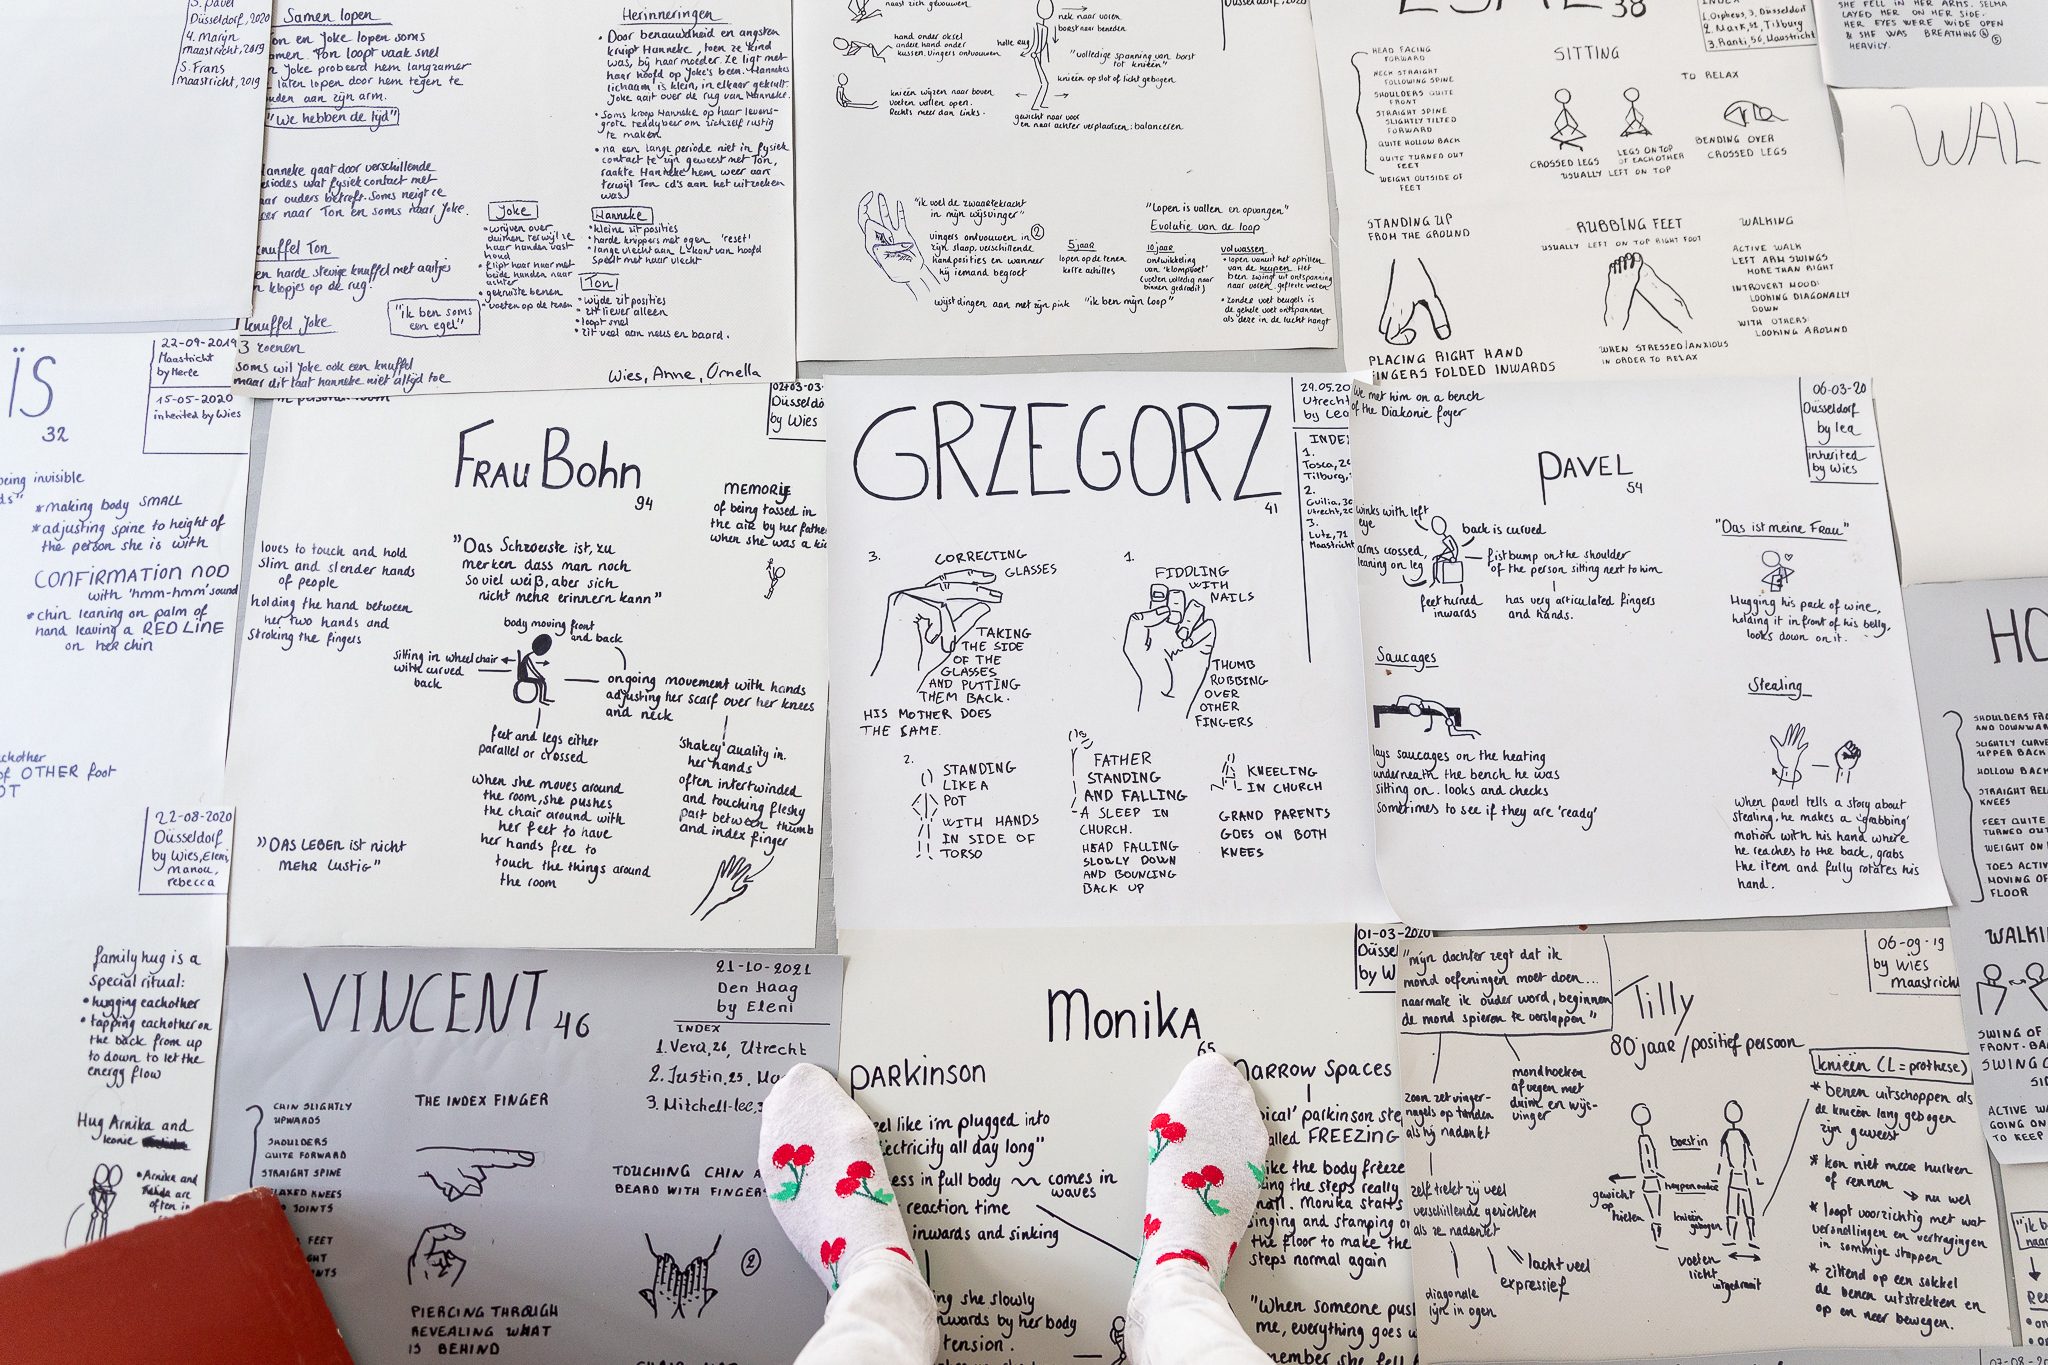 S. pavel
Düsseldorf, 2020
4. Marijn
maastricht, 2019
5. Frans
maastricht, 2019
Samen lopen
en Joke lopen soms
Ton loopt vaak snel
Joke probeerd hem langzamer
laten lopen door hem tegen te
aan zijn arm.
"We hebben de tijd"
Hanneke gaat door verschillende
wat fysiek contact met
ouders betreft. Soms neigt ze
naar Ton en soms naar Joke.
knuffel Ton
en harde stevige knuffel met aaitjes
klopjes op de rug.
knuffel Joke
3 zoenen
soms wil Joke ook een knuffel
maar dit laat hanneke niet altijd toe
"ik ben soms
een egel"
Herinneringen
• Door benauwdheid en angsten
kruipt Hanneke, toen ze kind
was, bij haar moeder. Ze ligt met
haar hoofd op Joke's been. Hannekes
lichaam is klein, in elkaar gekruld.
Joke aait over de rug van Hanneke.
• Soms kroop Hanneke op haar levens-
grote teddybeer om zichzelf rustig
te maken
• na een lange periode niet in fysiek
contact te zijn geweest met Ton,
raakte Hanneke hem weer aan
terwijl Ton cd's aan het uitzoeken
was
Joke
• wrijven over
duimen terwijl ze
haar handen vast
houd
• flipt haar haar met
beide handen naar
achter
• gekruiste benen
• voeten op de tenen
Hanneke
• kleine zit posities
• harde knippers met ogen 'reset'
• lange vlecht aan L kant van hoofd
speelt met haar vlecht
Ton
• wijde zit posities
• zit liever alleen
• loopt snel
• zit veel aan neus en baard.
Wies, Anne, Ornella
naast zich gevouwen
hand onder oksel
andere hand onder
kussen. vingers ontvouwen
knieën wijzen naar boven
voeten vallen open.
Rechts meer dan links.
nek naar voren
borst naar beneden
holle rug
"volledige spanning van borst
tot knieën"
knieën op slot of licht gebogen
gewicht naar voor
en naar achter verplaatsen: balanceren
Düsseldorf, 2020
"ik voel de zwaartekracht
in mijn wijsvinger"
vingers ontvouwen in 2
zijn slaap, verschillende
handposities en wanneer
hij iemand begroet
wijst dingen aan met zijn pink
"Lopen is vallen en opvangen"
Evolutie van de loop
5 jaar
lopen op de tenen
korte achilles
10 jaar
ontwikkeling
van 'klompvoet'
(voeten volledig naar
binnen gedraaid)
volwassen
• lopen vanuit het optillen
van de heupen. Het
been zwingt uit ontspanning
naar voren.
• zonder voet beugels is
de gehele voet ontspannen
als deze in de lucht hangt
"ik ben mijn loop"
38
INDEX
1. Orpheus, 3, Düsseldorf
2. Mark, 51, Tilburg
3. Ranti, 56, Maastricht
HEAD FACING
FORWARD
NECK STRAIGHT
FOLLOWING SPINE
SHOULDERS QUITE
FRONT
STRAIGHT SPINE
SLIGHTLY TILTED
FORWARD
QUITE HOLLOW BACK
QUITE TURNED OUT
FEET
WEIGHT OUTSIDE OF
FEET
SITTING
TO RELAX
CROSSED LEGS
LEGS ON TOP
OF EACHOTHER
USUALLY LEFT ON TOP
BENDING OVER
CROSSED LEGS
STANDING UP
FROM THE GROUND
PLACING RIGHT HAND
FINGERS FOLDED INWARDS
RUBBING FEET
USUALLY LEFT ON TOP RIGHT FOOT
WHEN STRESSED/ANXIOUS
IN ORDER TO RELAX
WALKING
ACTIVE WALK
LEFT ARM SWINGS
MORE THAN RIGHT
INTROVERT MOOD:
LOOKING DIAGONALLY
DOWN
WITH OTHERS:
LOOKING AROUND
SHE FELL IN HER ARMS. SELMA
LAYED HER ON HER SIDE.
HER EYES WERE WIDE OPEN
& SHE WAS BREATHING 4
HEAVILY. 5
ÏS
32
22-09-2019
Maastricht
by Merle
15-05-2020
inherited by Wies
being invisible
* making body SMALL
* adjusting spine to height of
the person she is with
CONFIRMATION NOD
with 'hmm-hmm' sound
* chin leaning on palm of
hand leaving a RED LINE
on her chin
of OTHER foot
22-08-2020
Düsseldorf
by Wies, Eleni,
manou,
rebecca
family hug is a
special ritual:
• hugging eachother
• tapping eachother on
the back from up
to down to let the
energy flow
Hug Arnika and
• Arnika and
are
often in
Frau Bohn
94
02+03-03
Düsseldo
by Wies
loves to touch and hold
slim and slender hands
of people
holding the hand between
her two hands and
stroking the fingers
"Das Schwerste ist, zu
merken dass man noch
so viel weiß, aber sich
nicht mehr erinnern kann"
MEMORIE
of being tossed in
the air by her father
when she was a kid
body moving front
and back
sitting in wheel chair
with curved
back
ongoing movement with hands
adjusting her scarf over her knees
and neck
feet and legs either
parallel or crossed
when she moves around
the room, she pushes
the chair around with
her feet to have
her hands free to
touch the things around
the room
'shakey' quality in
her hands
often intertwinded
and touching fleshy
part between thumb
and index finger
"DAS LEBEN ist nicht
MEHR LUSTIG"
GRZEGORZ
41
29.05.20
Utrecht
by Lea
INDEX
1.
Tosca, 2
Tilburg,
2.
Guilia, 30
Utrecht, 20
3.
Lutz, 71
Maastricht
3.
CORRECTING
GLASSES
TAKING
THE SIDE
OF THE
GLASSES
AND PUTTING
THEM BACK.
HIS MOTHER DOES
THE SAME.
1.
FIDDLING
WITH
NAILS
THUMB
RUBBING
OVER
OTHER
FINGERS
2.
STANDING
LIKE A
POT
WITH HANDS
IN SIDE OF
TORSO
FATHER
STANDING
AND FALLING
A SLEEP IN
CHURCH.
HEAD FALLING
SLOWLY DOWN
AND BOUNCING
BACK UP
KNEELING
IN CHURCH
GRAND PARENTS
GOES ON BOTH
KNEES
We met him on a bench
of the Diakonie foyer
PAVEL
54
06-03-20
Düsseldorf
by lea
inherited
by Wies
winks with left
eye
arms crossed,
leaning on leg
back is curved
fistbump on the shoulder
of the person sitting next to him
feet turned
inwards
has very articulated fingers
and hands.
"Das ist meine Frau"
Hugging his pack of wine,
holding it in front of his belly,
looks down on it.
Saucages
lays saucages on the heating
underneath the bench he was
sitting on. looks and checks
sometimes to see if they are 'ready'
Stealing
When pavel tells a story about
stealing. he makes a 'grabbing'
motion with his hand where
he reaches to the back, grabs
the item and fully rotates his
hand.
SHOULDERS
AND DOWNWARD
SLIGHTLY CURVE
UPPER BACK
HOLLOW BACK
STRAIGHT
KNEES
FEET QUITE
TURNED OUT
WEIGHT ON
TOES ACTIVE
MOVING OF
FLOOR
SWING OF
FRONT-BA
ACTIVE WA
GOING ON
TO KEEP
VINCENT 46
21-10-2021
Den Haag
by Eleni
INDEX
1. Vera, 26, Utrecht
2. Justin, 25, Ma
3. Mitchell-lee, 3
CHIN SLIGHTLY
UPWARDS
SHOULDERS
QUITE FORWARD
STRAIGHT SPINE
RELAXED KNEES
JOINTS
FEET
THE INDEX FINGER
TOUCHING CHIN A
BEARD WITH FINGERS
PIERCING THROUGH
REVEALING WHAT
IS BEHIND
2
Monika
65
01-03-2020
Düsse
by W
PARKINSON
feel like i'm plugged into
electricity all day long"
ess in full body ~ comes in
waves
reaction time
inwards and sinking
she slowly
by her body
tension.
NARROW SPACES
pical' parkinson ste
alled FREEZING
like the body freeze
the steps really
small. Monika starts
singing and stamping on
the floor to make the
steps normal again
"When someone pus
me, everything goes
"mijn dochter zegt dat ik
mond oefeningen moet doen...
naarmate ik ouder word, beginnen
de mond spieren te verslappen"
Tilly
80 jaar/positief persoon
06-09-19
by WIES
maastricht
zoon zet vinger-
nagels op tanden
als hij nadenkt
mondhoeken
afvegen met
duim en wijs-
vinger
zelf trekt zij veel
verschillende gezichten
als ze nadenkt
diagonale
lijn in ogen
lacht veel
expressief
borst in
gewicht
op
hielen
knieën
gebogen
voeten
licht
uitgedraait
knieën (L = prothese)
* benen uitschoppen als
de knieën lang gebogen
zijn geweest
* kan niet meer hurken
of rennen
nu wel
* loopt voorzichtig met wat
versnellingen en vertragingen
in sommige stappen
* zittend op een sokkel
de benen uitstrekken en
op en neer bewegen.